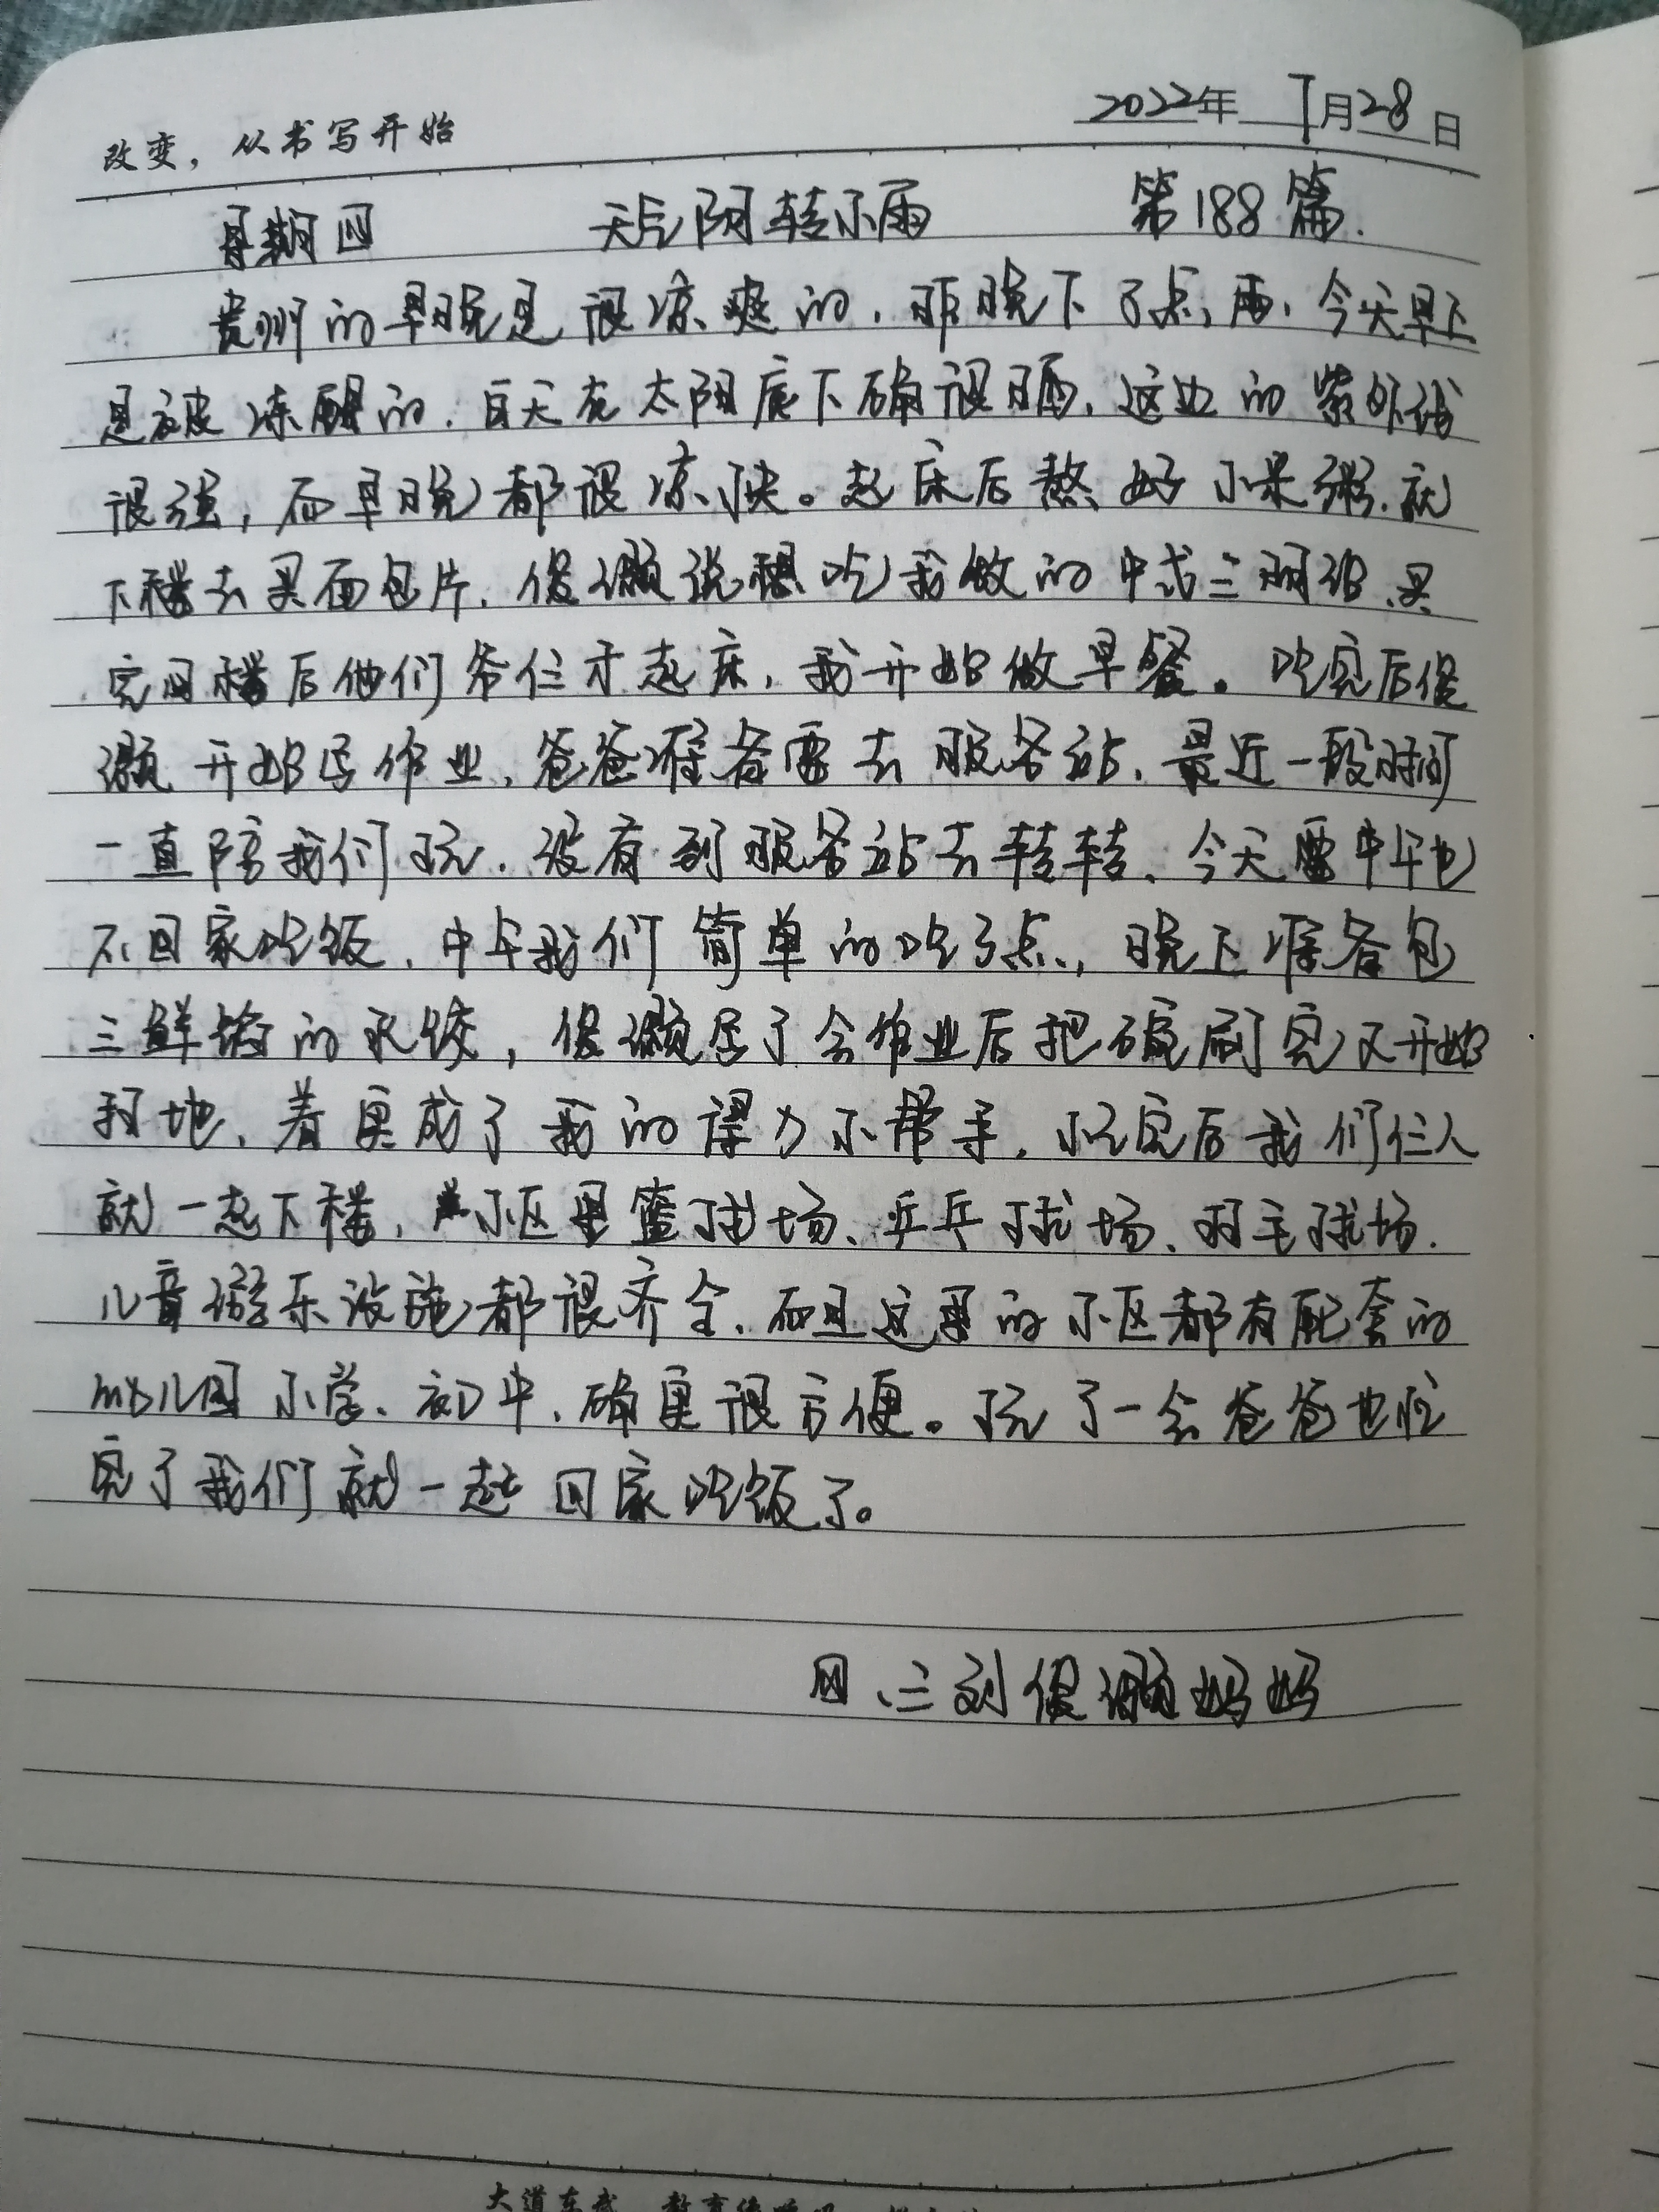 改变，从书写开始
2022年 7月28日
星期四 天气阴转小雨 第188篇.
贵州的早晚是很凉爽的，昨晚下了点雨，今天早上
是被冻醒的，白天在太阳底下确很晒，这边的紫外线
很强，而早晚都很凉快。起床后熬好小米粥，就
下楼去买面包片，俊灏说想吃我做的中式三明治，买
完回楼后他们爷仨才起床，我开始做早餐。吃完后俊
灏开始写作业，爸爸准备要去服务站，最近一段时间
一直陪我们玩，没有到服务站去转转，今天要中午也
不回家吃饭，中午我们简单的吃了点，晚上准备包
三鲜馅的水饺，俊灏写了会作业后把碗刷完又开始
扫地，着实成了我的得力小帮手，忙完后我们仨人
就一起下楼，小区里篮球场、乒乓球场、羽毛球场、
儿童游乐设施都很齐全，而且这里的小区都有配套的
幼儿园 小学、初中，确实很方便。玩了一会爸爸也忙
完了我们就一起回家吃饭了。
四、三刘俊灏妈妈